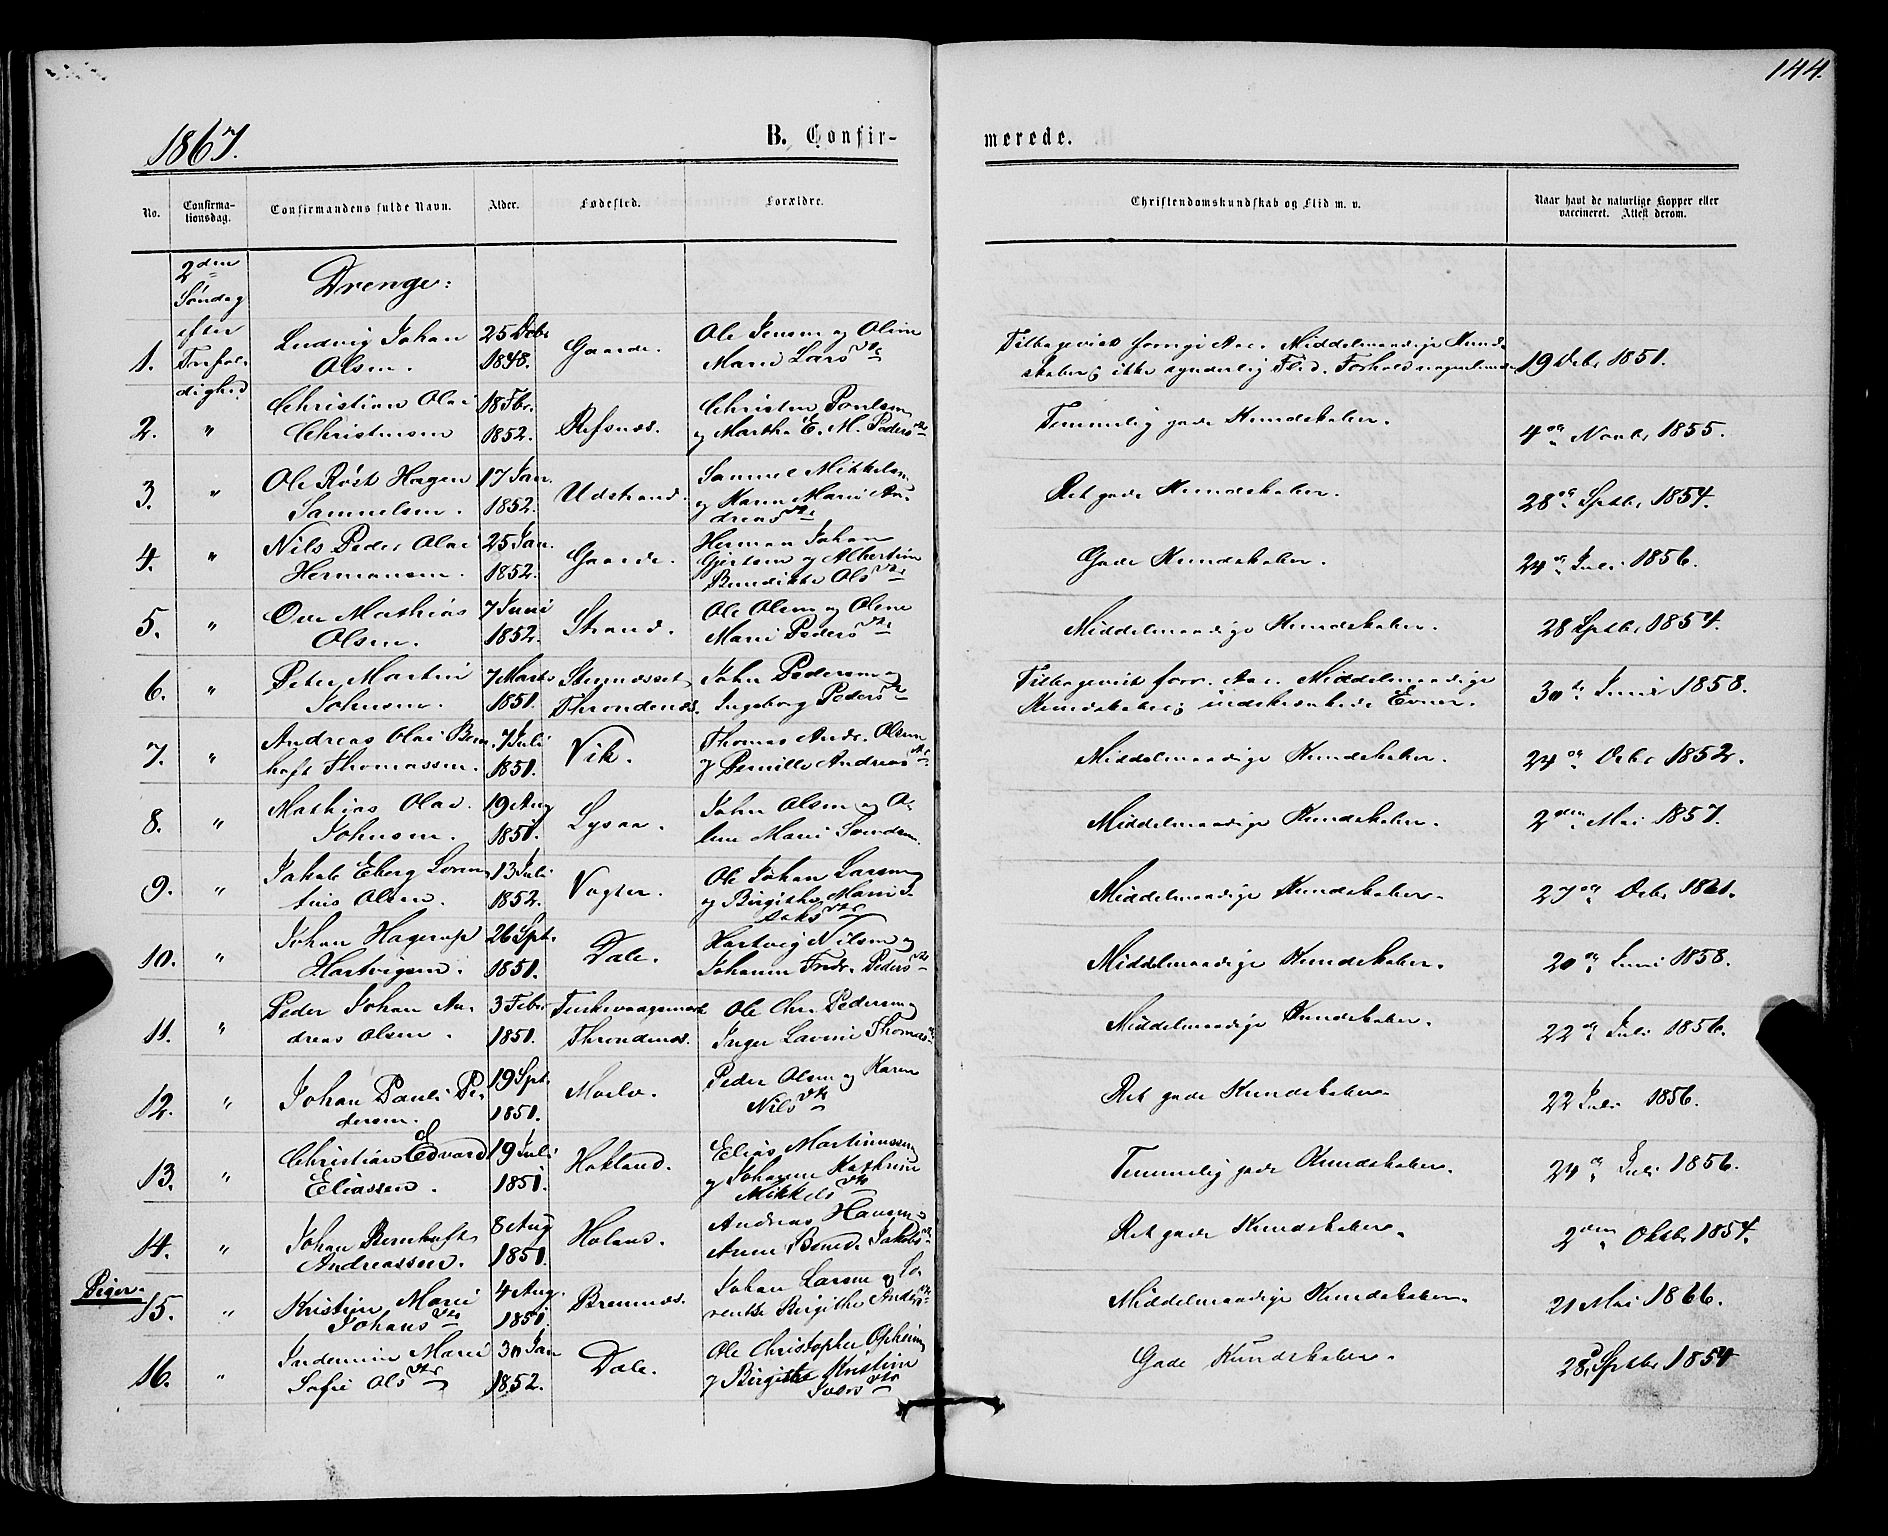 144.
1867.
B. Confirmerede.
No. | Confirmationsdag. | Confirmandens fulde Navn. | Alder. | Fødested. | Forældre. | Christendomskundskab og Flid m. v. | Naar havt de naturlige Kopper eller vaccineret. Attest derom.
2den Søndag efter Trefoldighed
Drenge:
1. | Ludvig Johan Olsen. | 25 Debr 1848. | Gaarde. | Ole Jensen og Oline Marie Larsdtr | Tilbagevist forrige Aar. Middelmaadige Kundskaber; ikke synderlig Flid. | 19 Debr 1851.
2. | " | Christian Olai Christensen | 18 Fbr. 1852. | Refsnæs. | Christen Poulsen og Martha E. M. Pedersdtr | Temmelig gode Kundskaber. | 4de Novbr 1855.
3. | " | Ole Røst Hagen Samuelsen. | 17 Jan. 1852. | Udstrand. | Samuel Mikkelsen og Karen Marie Andreasdtr | Ret gode Kundskaber. | 28de Sptbr 1854.
4. | " | Nils Peder Olai Hermansen. | 25 Jan. 1852. | Gaarde. | Herman Johan Gjertsen og Albertine Benedikte Olsdtr | Gode Kundskaber. | 24de Juli 1856.
5. | " | Ove Mathias Olsen. | 7 Juni 1852. | Strand. | Ole Olsen og Olene Marie Pedersdtr | Middelmaadige Kundskaber. | 28 Sptbr 1854.
6. | " | Peter Martin Johnsen. | 7 Marts 1851. | Throndenæs. | John Pedersen og Ingeborg Pedersdtr | Tilbagevist forr. Aar. Middelmaadige Kundskaber; indskrænkede Evner. | 30te Juni 1858.
7. | " | Andreas Olai Bernhoft Thomassen. | 7 Juli 1851. | Vik. | Thomas Andr. Olsen og Pernille Andreasdtr | Middelmaadige Kundskaber. | 24de Debr 1852.
8. | " | Mathias Olai Johnsen. | 19 Aug 1851. | Lysaa. | John Olsen og Oline Marie | Middelmaadige Kundskaber. | 2den Mai 1857.
9. | " | Jakob Eberg Lorentius Olsen. | 13 Juli 1852. | Vogter. | Ole Johan Larsen og Birgithe Marie Isaksdtr | Middelmaadige Kundskaber. | 27de Debr 1861.
10. | " | Johan Hagerup Hartvigsen. | 26 Spt. 1851. | Dale. | Hartvig Nilsen og Johanne Fredr. Pedersdtr | Middelmaadige Kundskaber. | 20de Juni 1858.
11. | " | Peder Johan Andreas Olsen. | 3 Febr 1851. | Throndenæs. | Ole Chr. Pedersen og Inger Lavine Thomasdtr | Middelmaadige Kundskaber. | 22de Juli 1856.
12. | " | Johan Pauli Pedersen. | 19 Spt. 1851. | Moelv. | Peder Olsen og Karen Nilsdtr | Ret gode Kundskaber. | 22 Juli 1856.
13. | " | Christian Edvard Eliassen. | 19 Juli 1851. | Hokland. | Elias Martinussen og Johanne Kathrine Mikkelsdtr | Temmelig gode Kundskaber. | 24de Juli 1856.
14. | " | Johan Bernhoft Andreassen. | 8 Aug 1851. | Holand. | Andreas Hansen og Anne Bened. Jakobsdtr | Ret gode Kundskaber. | 2den Oktbr 1854.
Piger.
15. | " | Kristine Marie Johansdtr | 4 Aug. 1851. | Bremnæs. | Johan Larsen og Lorentse Birgithe Andersdtr | Middelmaadige Kundskaber. | 21 Mai 1866.
16. | " | Indermine Marie Sofie Olsdtr | 30 Jan 1852. | Dale. | Ole Christopher Opheim og Birgithe Kristine Iversdtr | Gode Kundskaber. | 28de Sptbr 1854